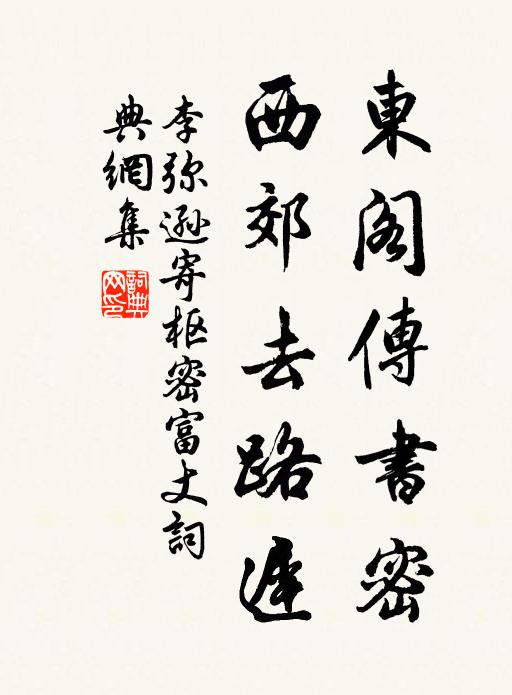 東閣傳書密
西郊去路遲
李弥遜寄枢密富丈詞
典網集
詞典网印